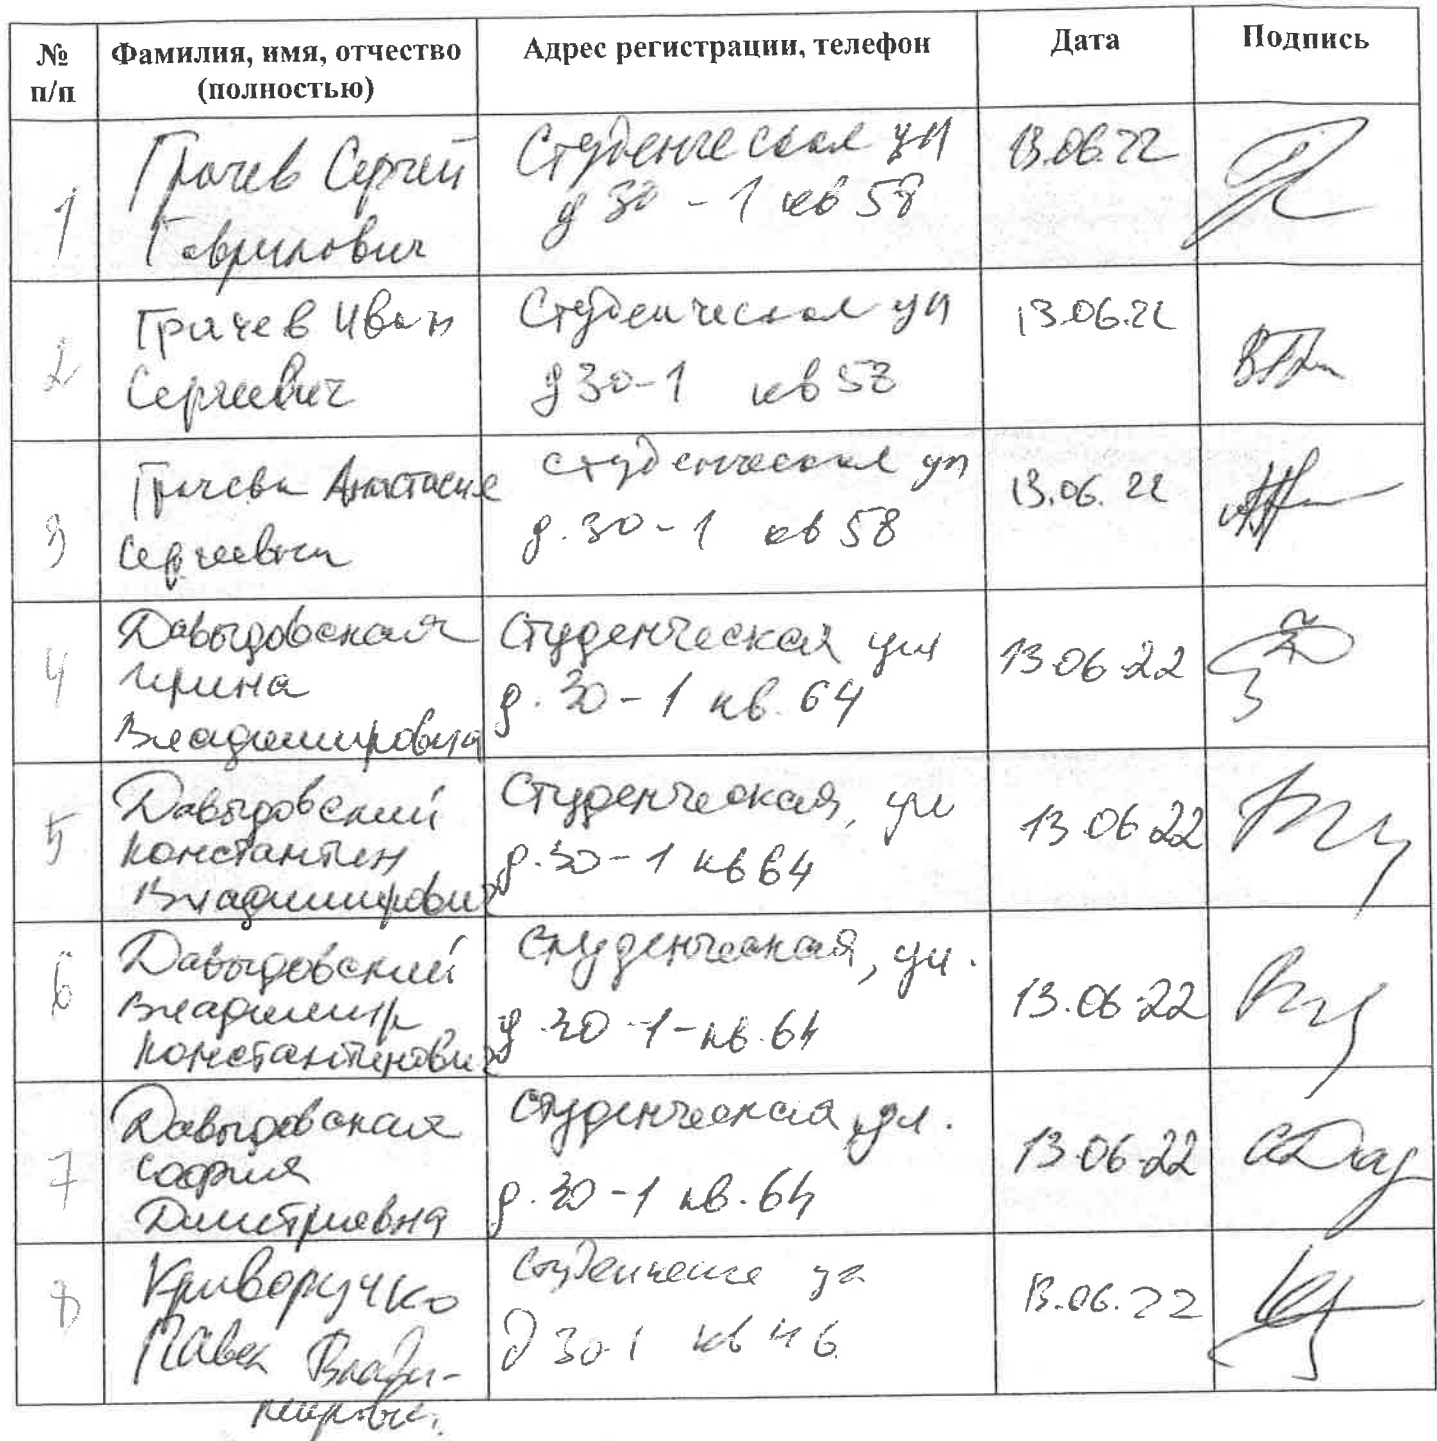 № п/п
Фамилия, имя, отчество (полностью)
Адрес регистрации, телефон
Дата
Подпись
1
Грачев Сергей
Гаврилович
Студенческая ул
д 30 - 1 кв 58
13.06.22
2
Грачев Иван
Сергеевич
Студенческая ул
д 30-1 кв 58
13.06.22
3
Грачева Анастасия
Сергеевна
студенческая ул
д. 30-1 кв 58
13.06.22
4
Давыдовская
Ирина
Владимировна
Студенческая ул
д. 30-1 кв. 64
13.06.22
5
Давыдовский
Константин
Владимирович
Студенческая, ул
д. 30-1 кв 64
13.06.22
6
Давыдовский
Владимир
Константинович
Студенческая, ул.
д. 30-1-кв. 64
13.06.22
7
Давыдовская
София
Дмитриевна
Студенческая, ул.
д. 30-1 кв. 64
13.06.22
8
Криворучко
Павел Влади-
мирович
д 30-1 кв 46
13.06.22